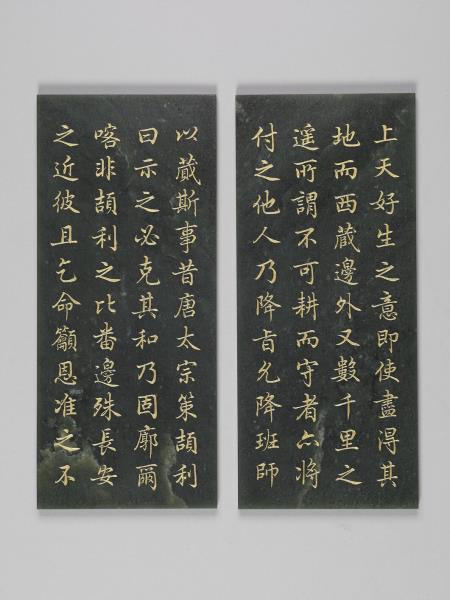 上天好生之意即使盡得其
地而西藏邊外又數千里之
遥所謂不可耕而守者亦將
付之他人乃降旨允降班師
以蕆斯事昔唐太宗策頡利
曰示之必克其和乃固廓爾
喀非頡利之比番邊殊長安
之近彼且乞命籲恩准之不